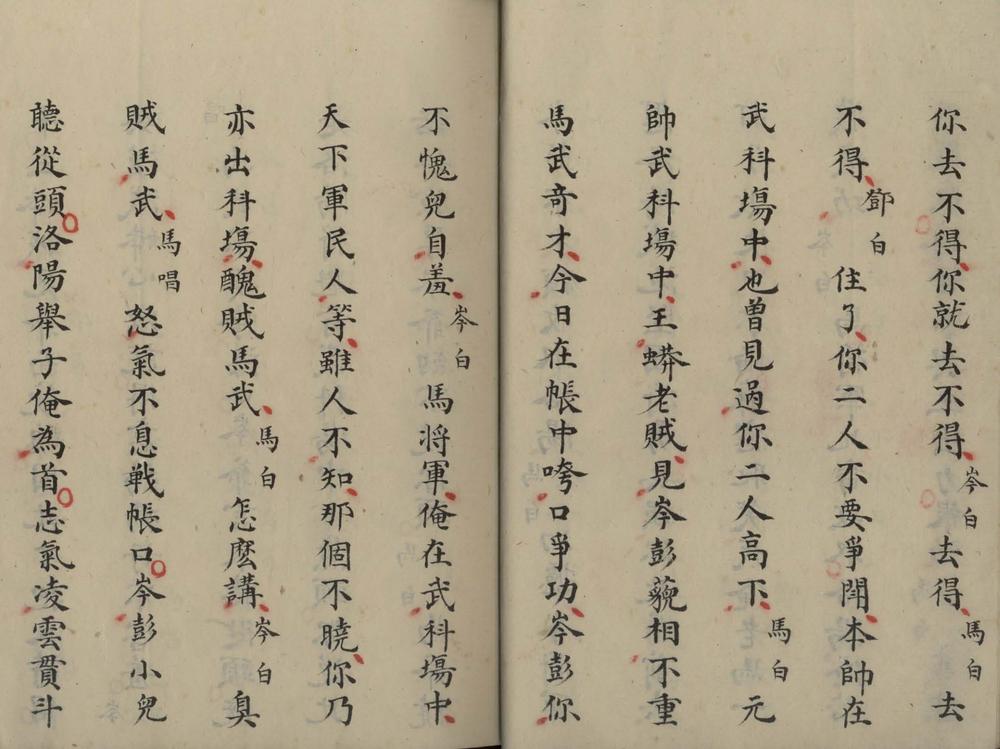 你去不得你就去不得岑白去得馬白去
不得鄧白住了你二人不要爭鬧本帥在
武科場中也曾見過你二人高下馬白元
帥武科場中王蟒老賊見岑彭藐相不重
馬武奇才今日在帳中咵口爭功岑彭你
不愧兒自羞岑白馬將軍俺在武科場中
天下軍民人等雖人不知那個不曉你乃
亦出科場醜賊馬武馬白怎麽講岑白臭
賊馬武馬唱怒氣不息戰帳口岑彭小兒
聽從頭洛陽舉子俺為首志氣凌雲貫斗